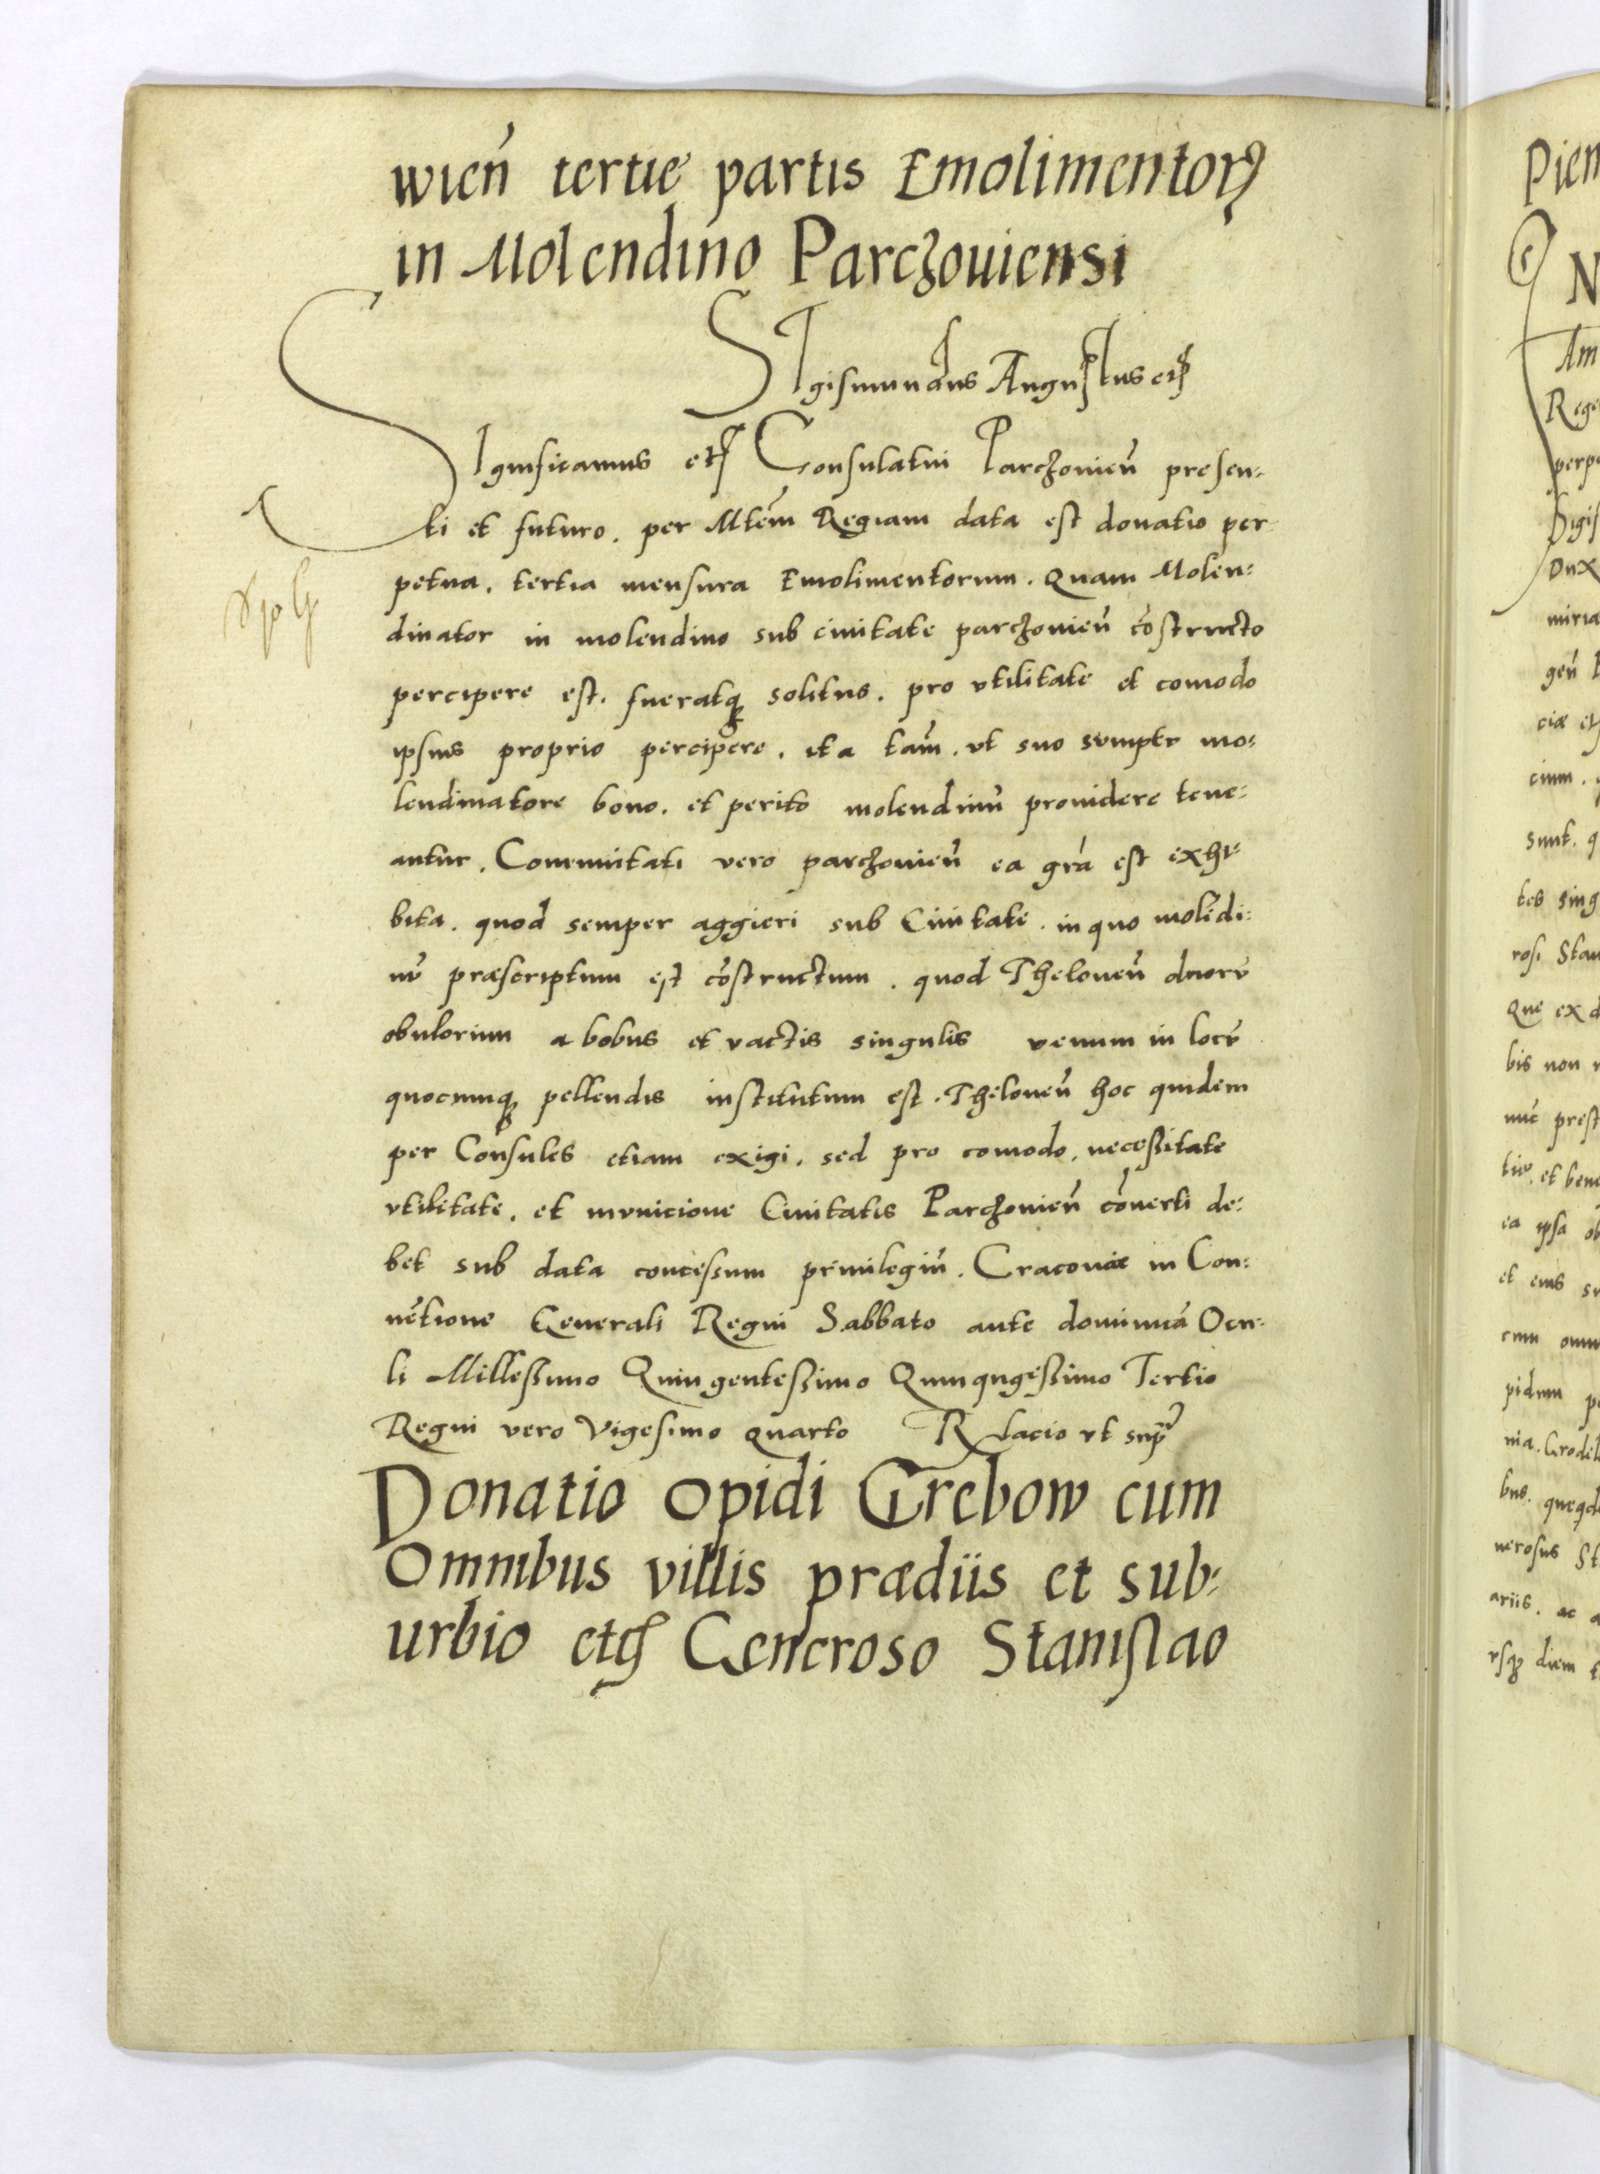 wień tertie partis Emolimentorꝝ
in Molendino Parczouiensi
SIgismundus Augustus etc
SIgnificamus etc Consulatui Parczouień presen-
ti et futuro. per Mtem̃ Regiam data est donatio per-
petua. tertia mensura Emolimentorum. Quam Molen-
dinator in molendino sub ciuitate parczouień cõstructo
percipere est. fueratqꝫ solitus. pro vtilitate et comodo
ipsius proprio percipere. ita tam̃. vt suo sumptu mo-
lendinatore bono. et perito molendinũ prouidere tene-
antur. Communitati vero parczouień ea grã est exhi-
bita. quod semper aggieri sub Ciuitate. in quo molẽdi-
nũ præscriptum est cõstructum. quod Theloneũ duorũ
obulorum a bobus et vactis singulis venum in locũ
quocumqꝫ pellendis institutum est. Theloneũ hoc quidem
per Consules etiam exigi. sed pro comodo. necessitate
vtilitate. et municione Ciuitatis Parczouień cõuerti de-
bet sub data concessum priuilegiũ. Cracouiæ in Con-
uẽtione Generali Regni Sabbato ante dominicã Ocu-
li Millessimo Quingentessimo Quinquagessimo Tertio
Regni vero Vigesimo quarto Relacio vt supra
Donatio Opidi Grebow cum
Omnibus villis prædiis et sub-
urbio etc Generoso Stanislao